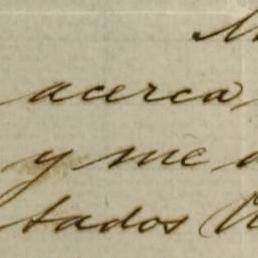 acerca
y me
tados